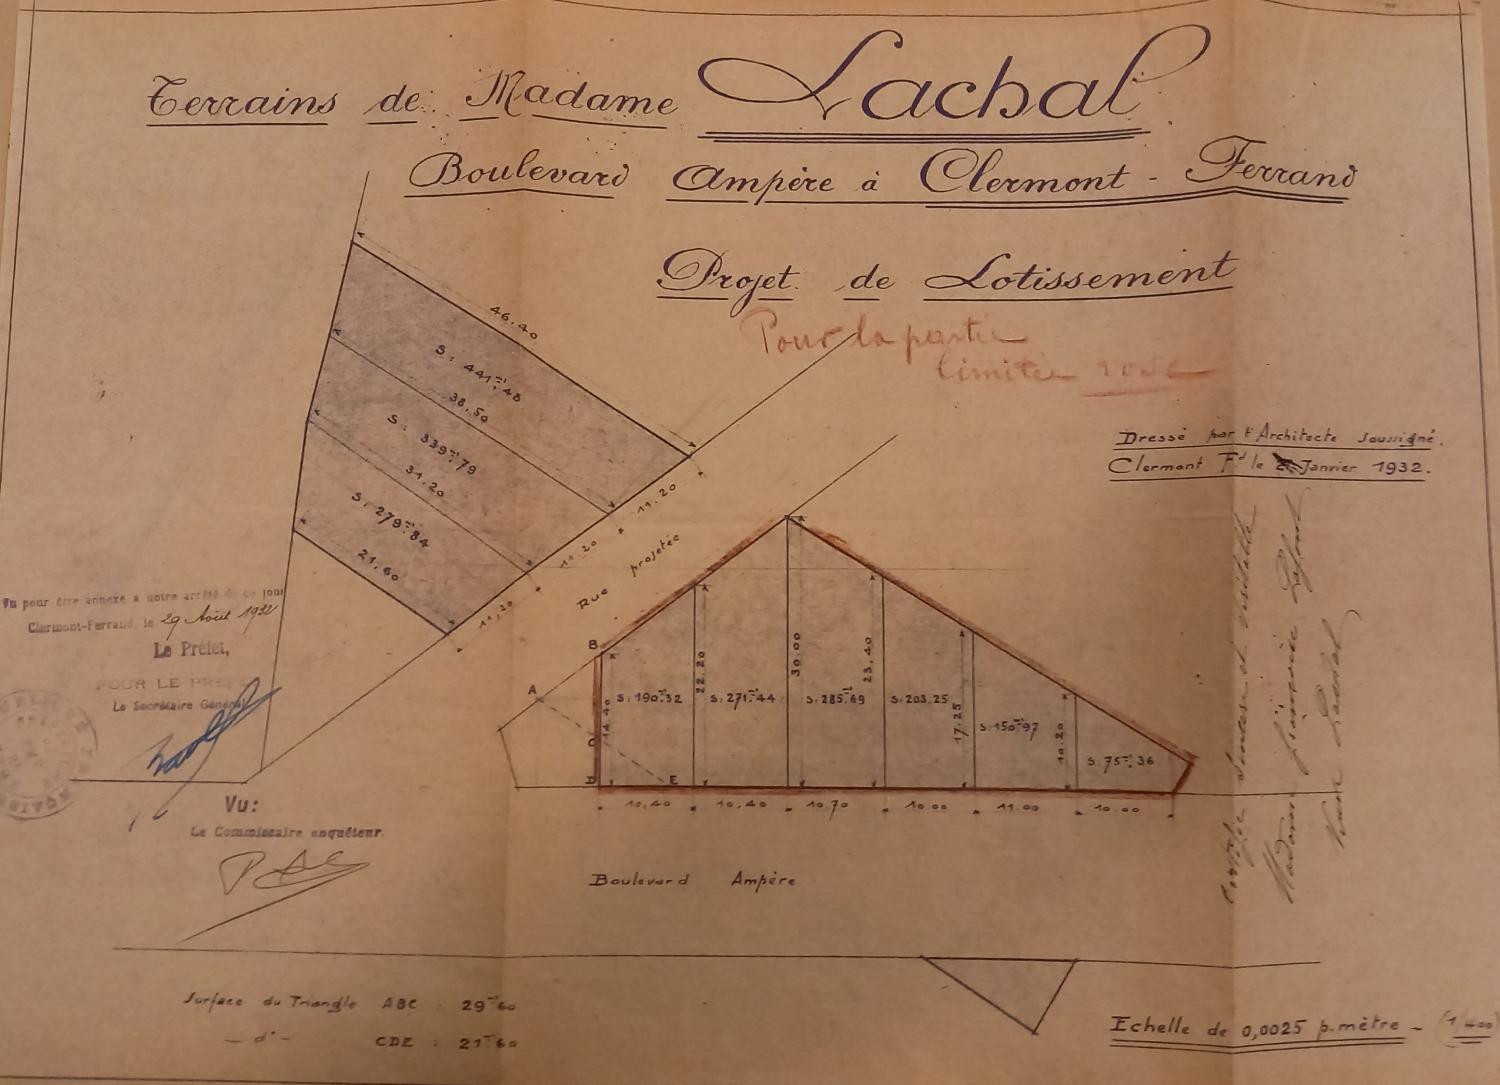 Terrains de Madame Lachal
Boulevard Ampère à Clermont-Ferrand
Projet de Lotissement
Pour la partie
limitée rose
Dressé par l'Architecte soussigné.
Clermont Fd le Janvier 1932.
46.40
S: 441m²48
38.50
S: 339m²79
31.20
S: 279m²84
21.60
11.20
11.20
11.20
Rue projetée
Vu pour être annexé à notre arrêté de ce jour
Clermont-Ferrand, le 29 Août 1932
Le Préfet,
POUR LE PRÉFET
Le Secrétaire Général
B
A
C
D
E
14.40
S: 190m²32
22.20
S: 271m²44
30.00
S: 285m²69
23.40
S: 203.25
17.25
S: 150m²97
10.20
S: 75m²36
10.40
10.40
10.70
10.00
11.00
10.00
Vu:
Le Commissaire enquêteur.
Boulevard Ampère
Surface du Triangle ABC : 29m²60
- d° - CDE : 21m²60
Echelle de 0,0025 p. mètre - (1/400)
Certifié sincère et véritable
Madame